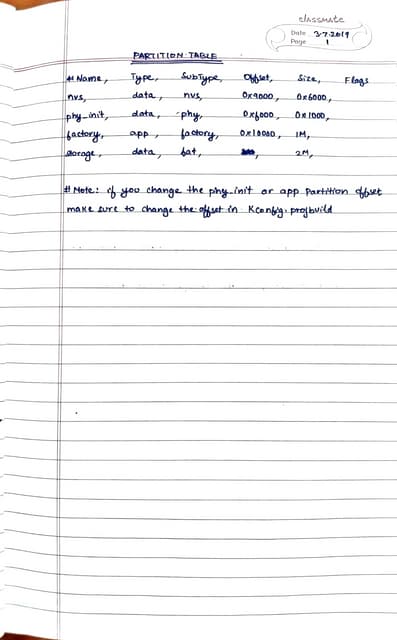 classmate
Date 3-7-2019
Page 1
PARTITION TABLE
# Name, Type, SubType, Offset, Size, Flags
nvs, data, nvs, 0x9000, 0x6000,
phy_init, data, phy, 0xf000, 0x1000,
factory, app, factory, 0x10000, 1M,
storage, data, fat, , 2M,
# Note: if you change the phy_init or app Partition offset
make sure to change the offset in Kconfig.projbuild